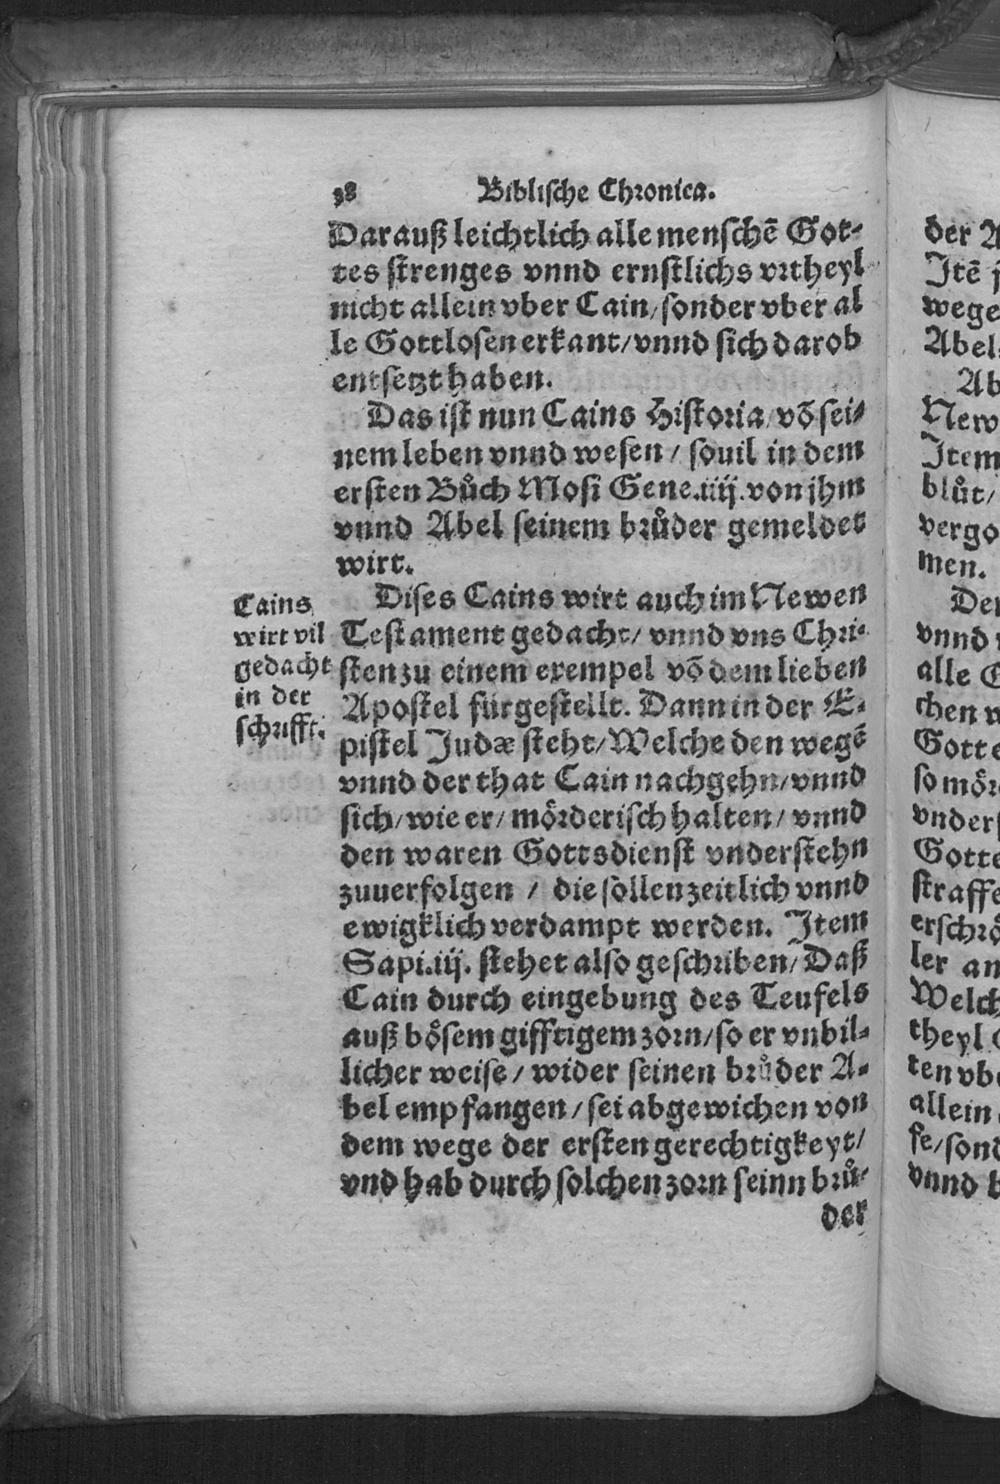 38 Biblische Chronica.
Darauß leichtlich alle menschẽ Got⸗
tes strenges vnnd ernstlichs vrtheyl
nicht allein vber Cain/sonder vber al
le Gottlosen erkant/vnnd sich darob
entsetzt haben.
Das ist nun Cains Historia/võ sei⸗
nem leben vnnd wesen / souil in dem
ersten Bůch Mosi Gene.iiij.von jhm
vnnd Abel seinem brůder gemeldet
wirt.
Cains
wirt vil
gedacht
in der
schrifft.
Dises Cains wirt auch im Newen
Testament gedacht/ vnnd vns Chri⸗
sten zu einem exempel võ dem lieben
Apostel fürgestellt. Dann in der E⸗
pistel Judæ steht/Welche den wegẽ
vnnd der that Cain nachgehn/vnnd
sich/wie er/ mörderisch halten/ vnnd
den waren Gottsdienst vnderstehn
zuuerfolgen / die sollen zeitlich vnnd
ewigklich verdampt werden. Item
Sapi.iij. stehet also geschriben/Daß
Cain durch eingebung des Teufels
auß bösem gifftigem zorn/so er vnbil⸗
licher weise / wider seinen brůder A⸗
bel empfangen / sei abgewichen von
dem wege der ersten gerechtigkeyt/
vnd hab durch solchen zorn seinn brů⸗
der
der
Itẽ
wege
Abel
Ab
New
Item
blůt/
vergo
men.
Der
vnnd
alle
chen
Gotte
so mör
vnders
Gotte
straffe
erschrö
ler an
Welch
theyl
ten vbe
allein
se/sond
vnnd